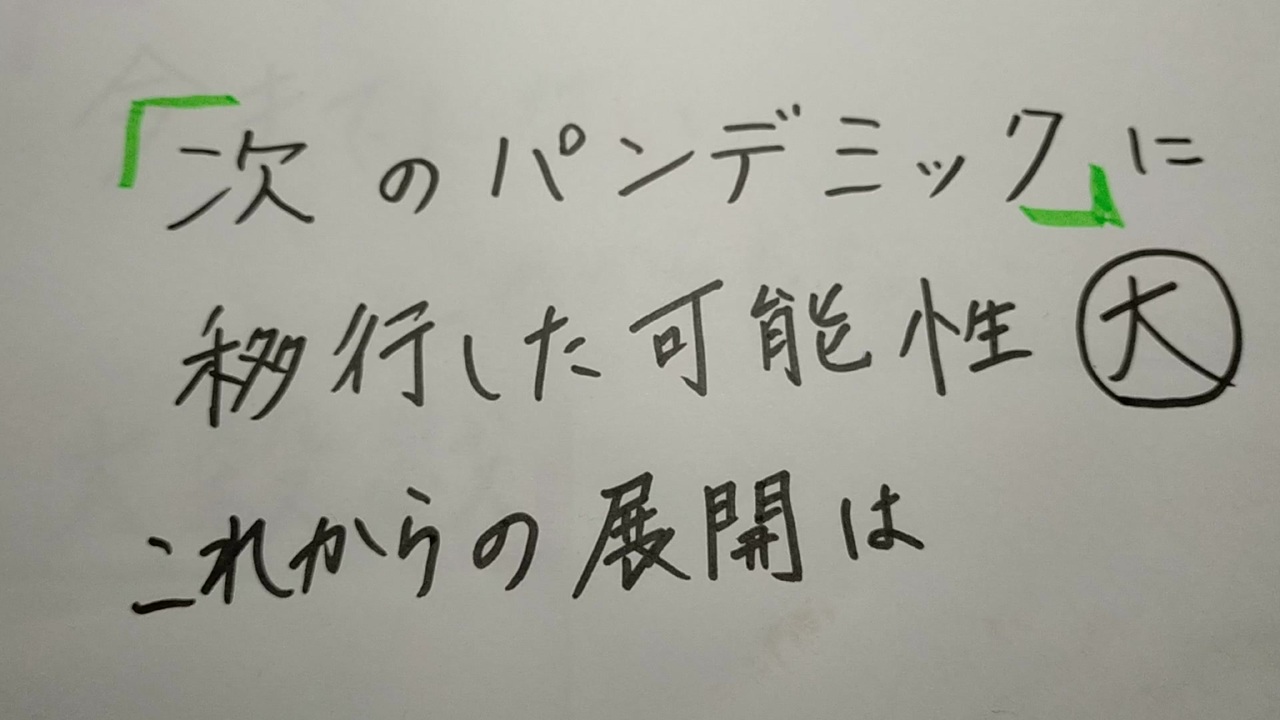 「次のパンデミック」に
移行した可能性大
これからの展開は